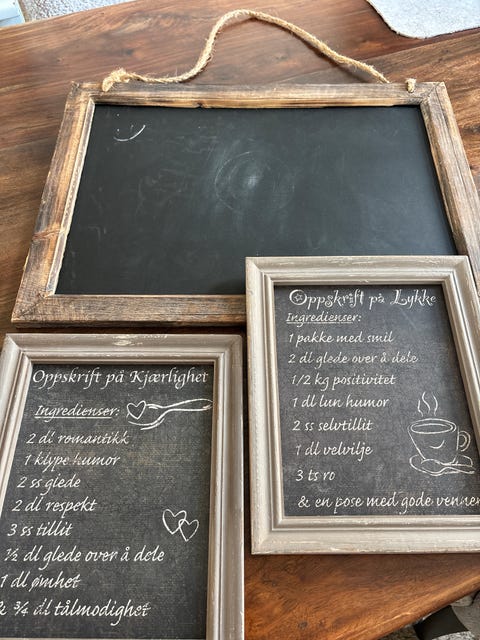 Oppskrift på Lykke
Ingredienser:
1 pakke med smil
2 dl glede over å dele
1/2 kg positivitet
1 dl lun humor
2 ss selvtillit
1 dl velvilje
3 ts ro
& en pose med gode venner
Oppskrift på Kjærlighet
Ingredienser:
2 dl romantikk
1 klype humor
2 ss glede
2 dl respekt
3 ss tillit
½ dl glede over å dele
1 dl ømhet
& ¾ dl tålmodighet